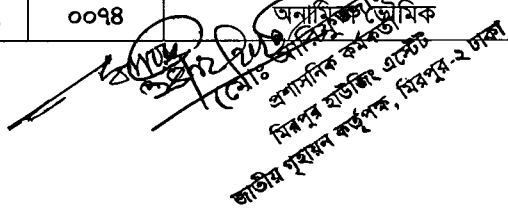 ০০৭৪ অনামিকা ভৌমিক
প্রশাসনিক কর্মকর্তা
মিরপুর হাউজিং এস্টেট
জাতীয় গৃহায়ন কর্তৃপক্ষ, মিরপুর-২ ঢাকা